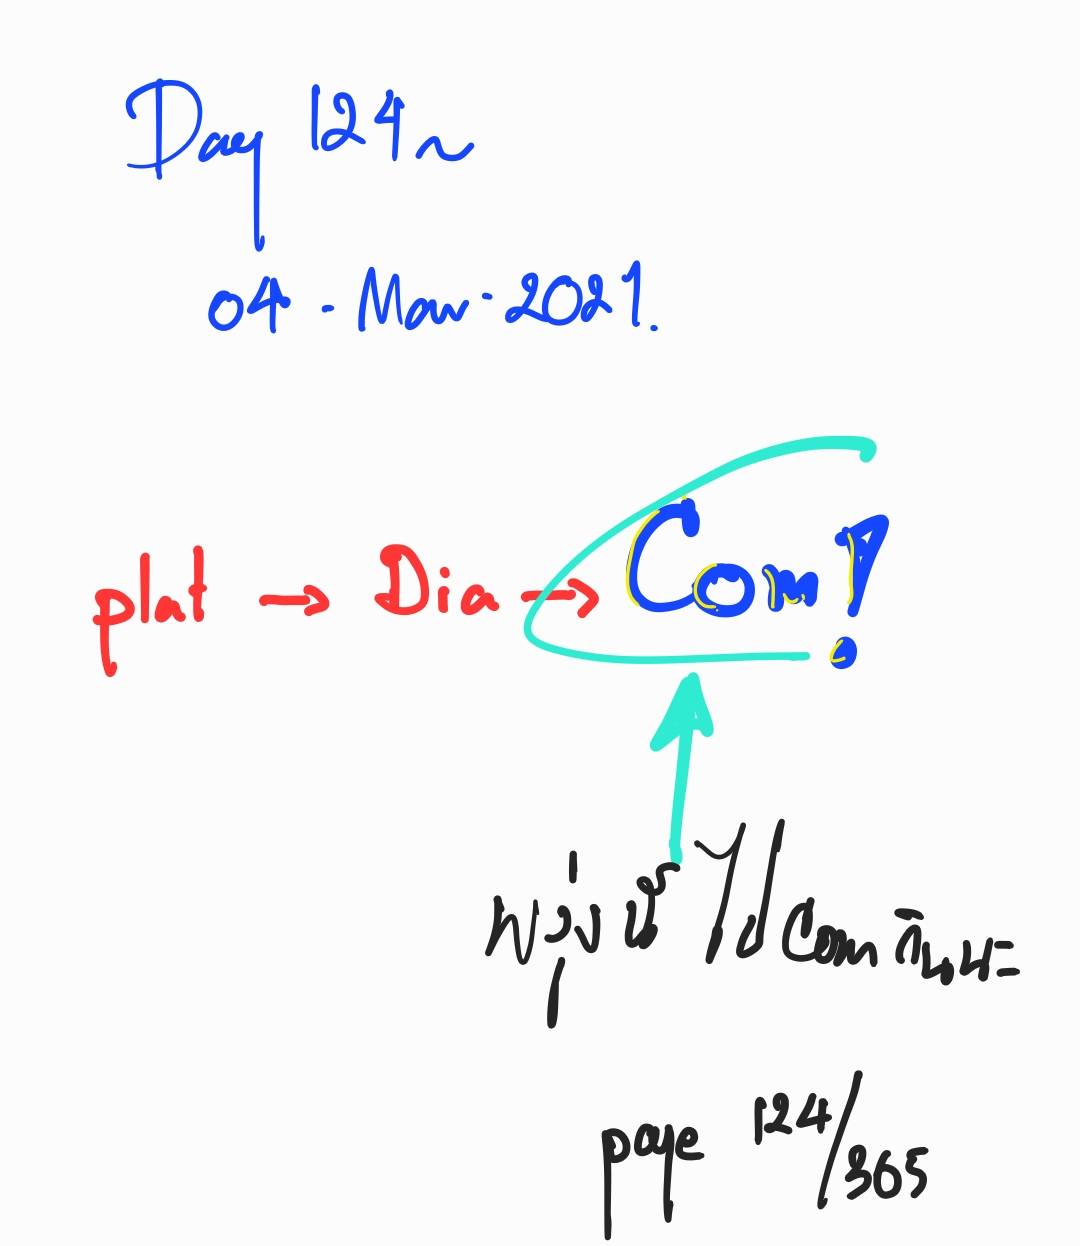 Day 124~
04 - Mar - 2021.
plat → Dia → Com!
พรุ่งนี้ ไป Com กันนะ
page 124/365